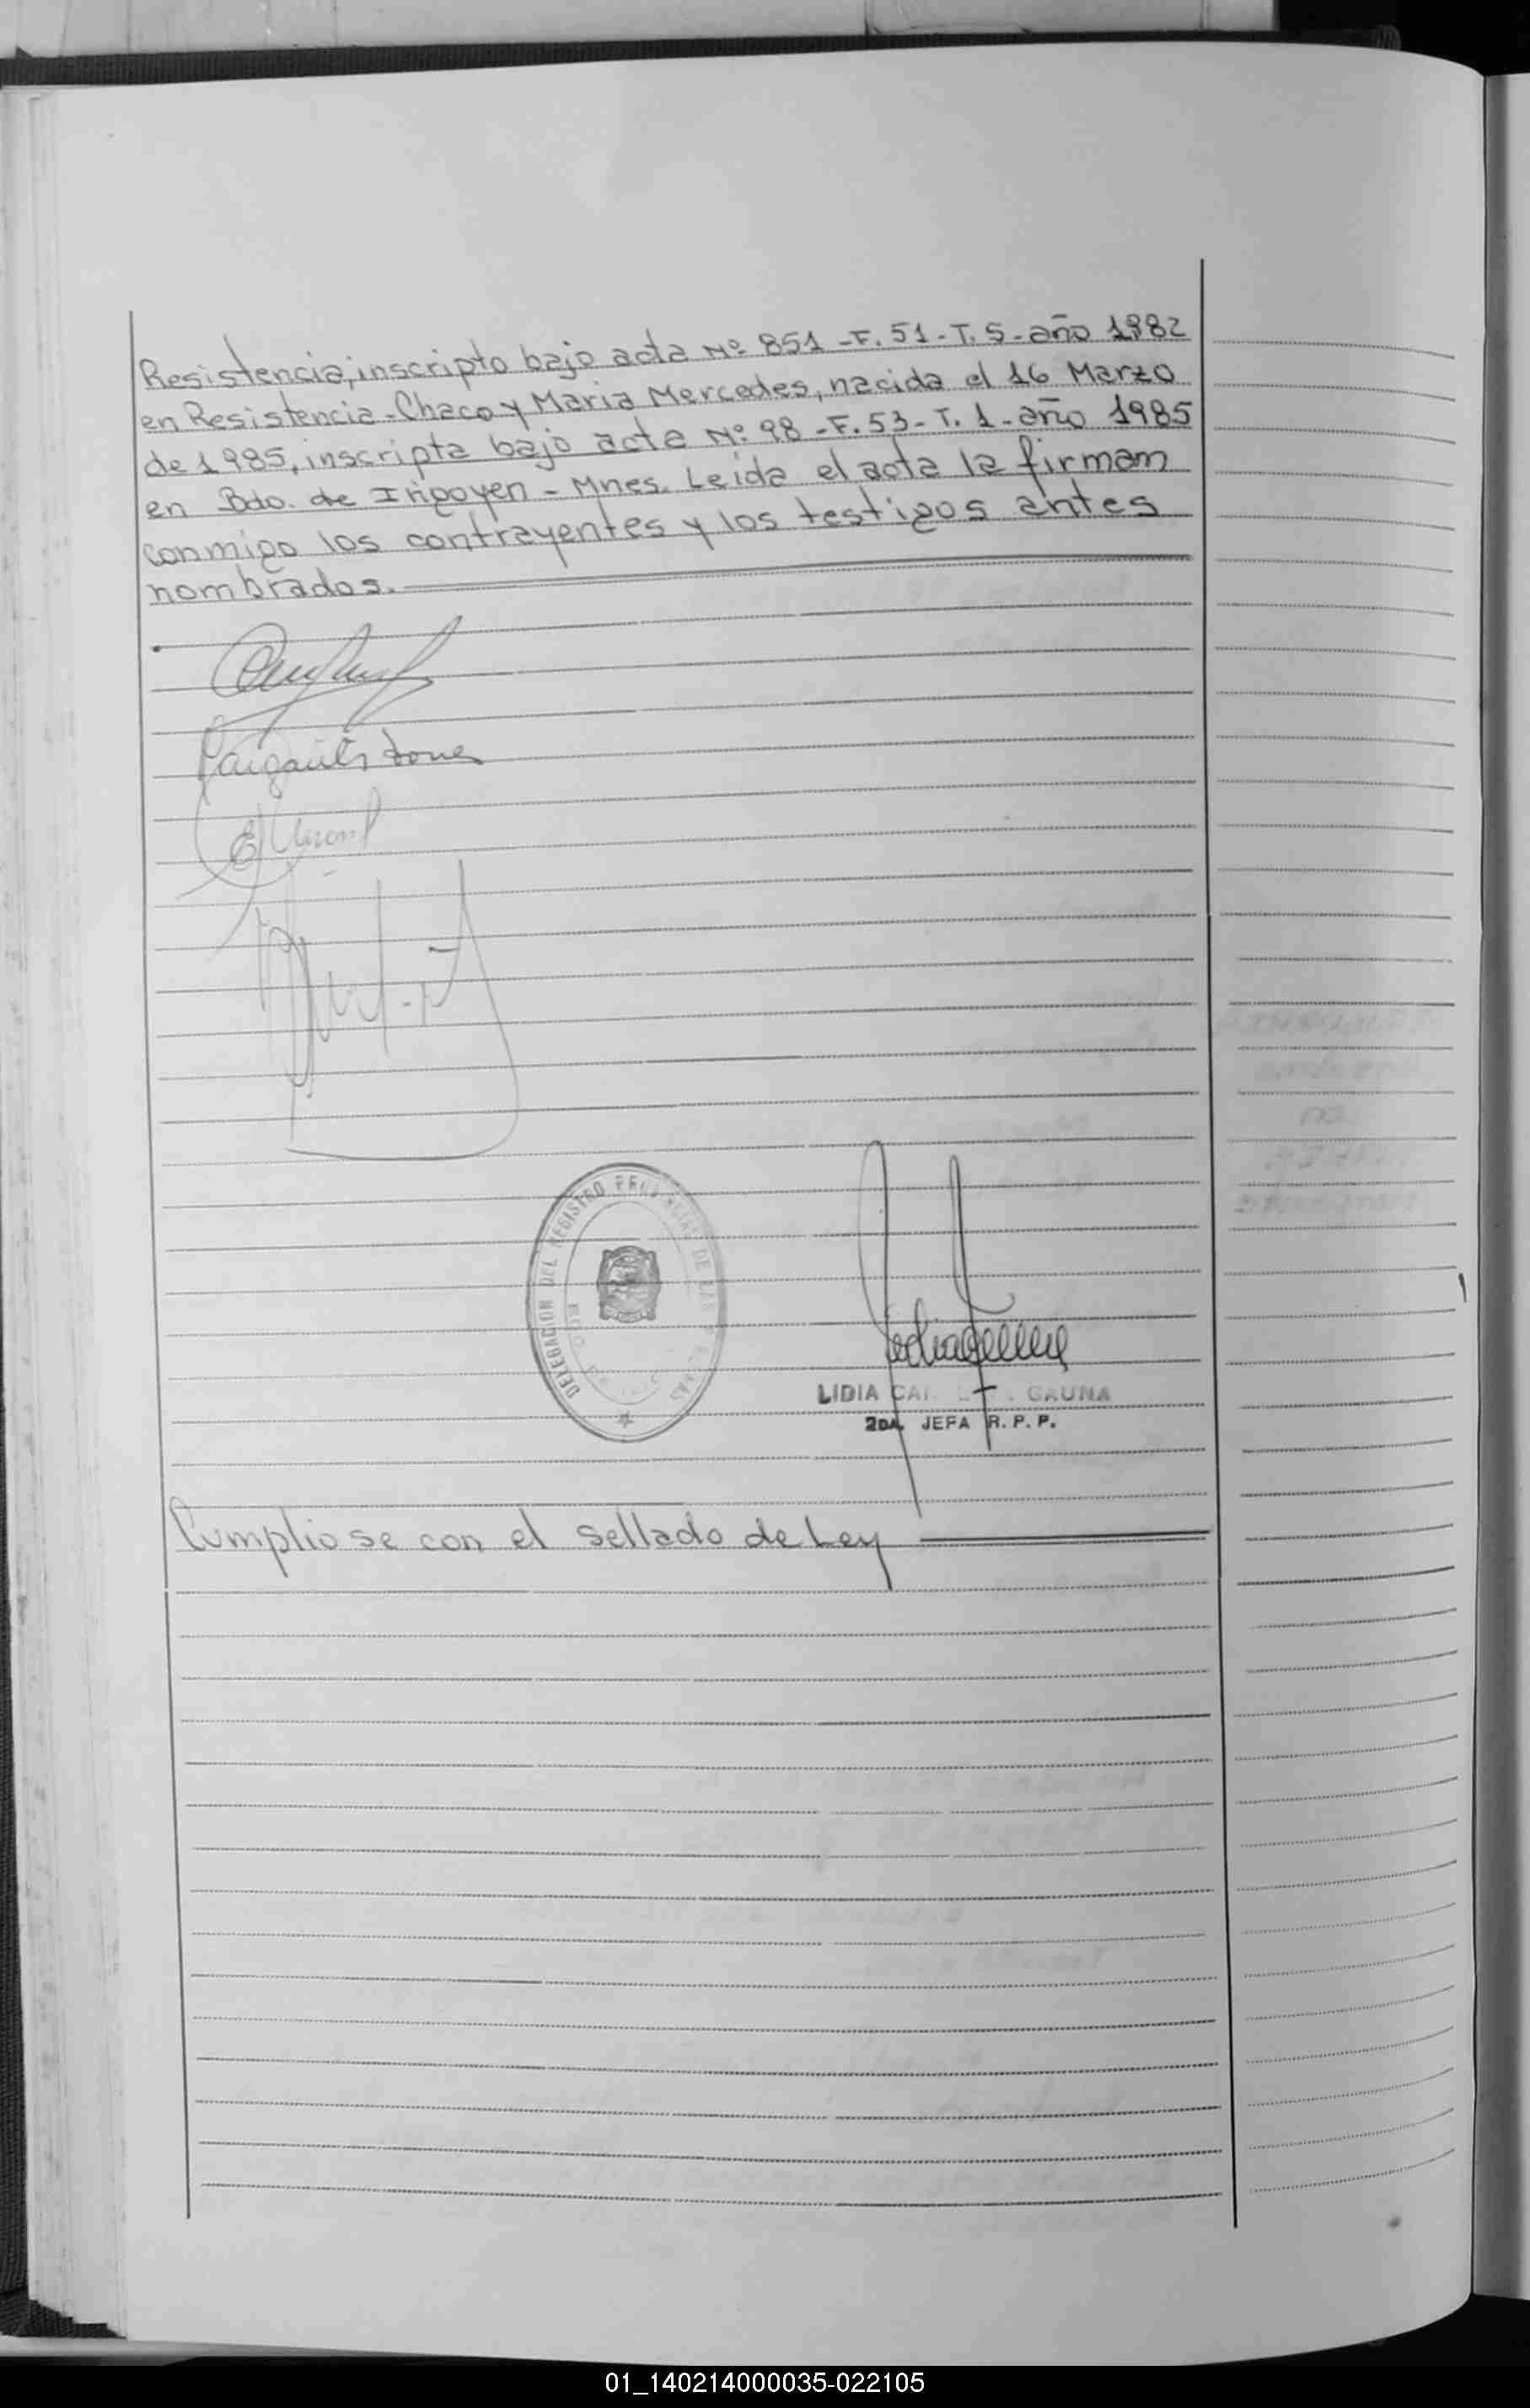 Resistencia, inscripto bajo acta Nº 851 - F. 51 - T. 5 - año 1982
en Resistencia - Chaco y Maria Mercedes, nacida el 16 Marzo
de 1985, inscripta bajo acta Nº 98 - F. 53 - T. 1 - año 1985
en Bdo. de Irigoyen - Mnes. Leida el acta la firman
conmigo los contrayentes y los testigos antes
nombrados.
DELEGACION DEL REGISTRO PROVINCIAL DE LAS PERSONAS
LIDIA GAUNA
2DA. JEFA R. P. P.
Cumpliose con el sellado de Ley
01_140214000035-022105